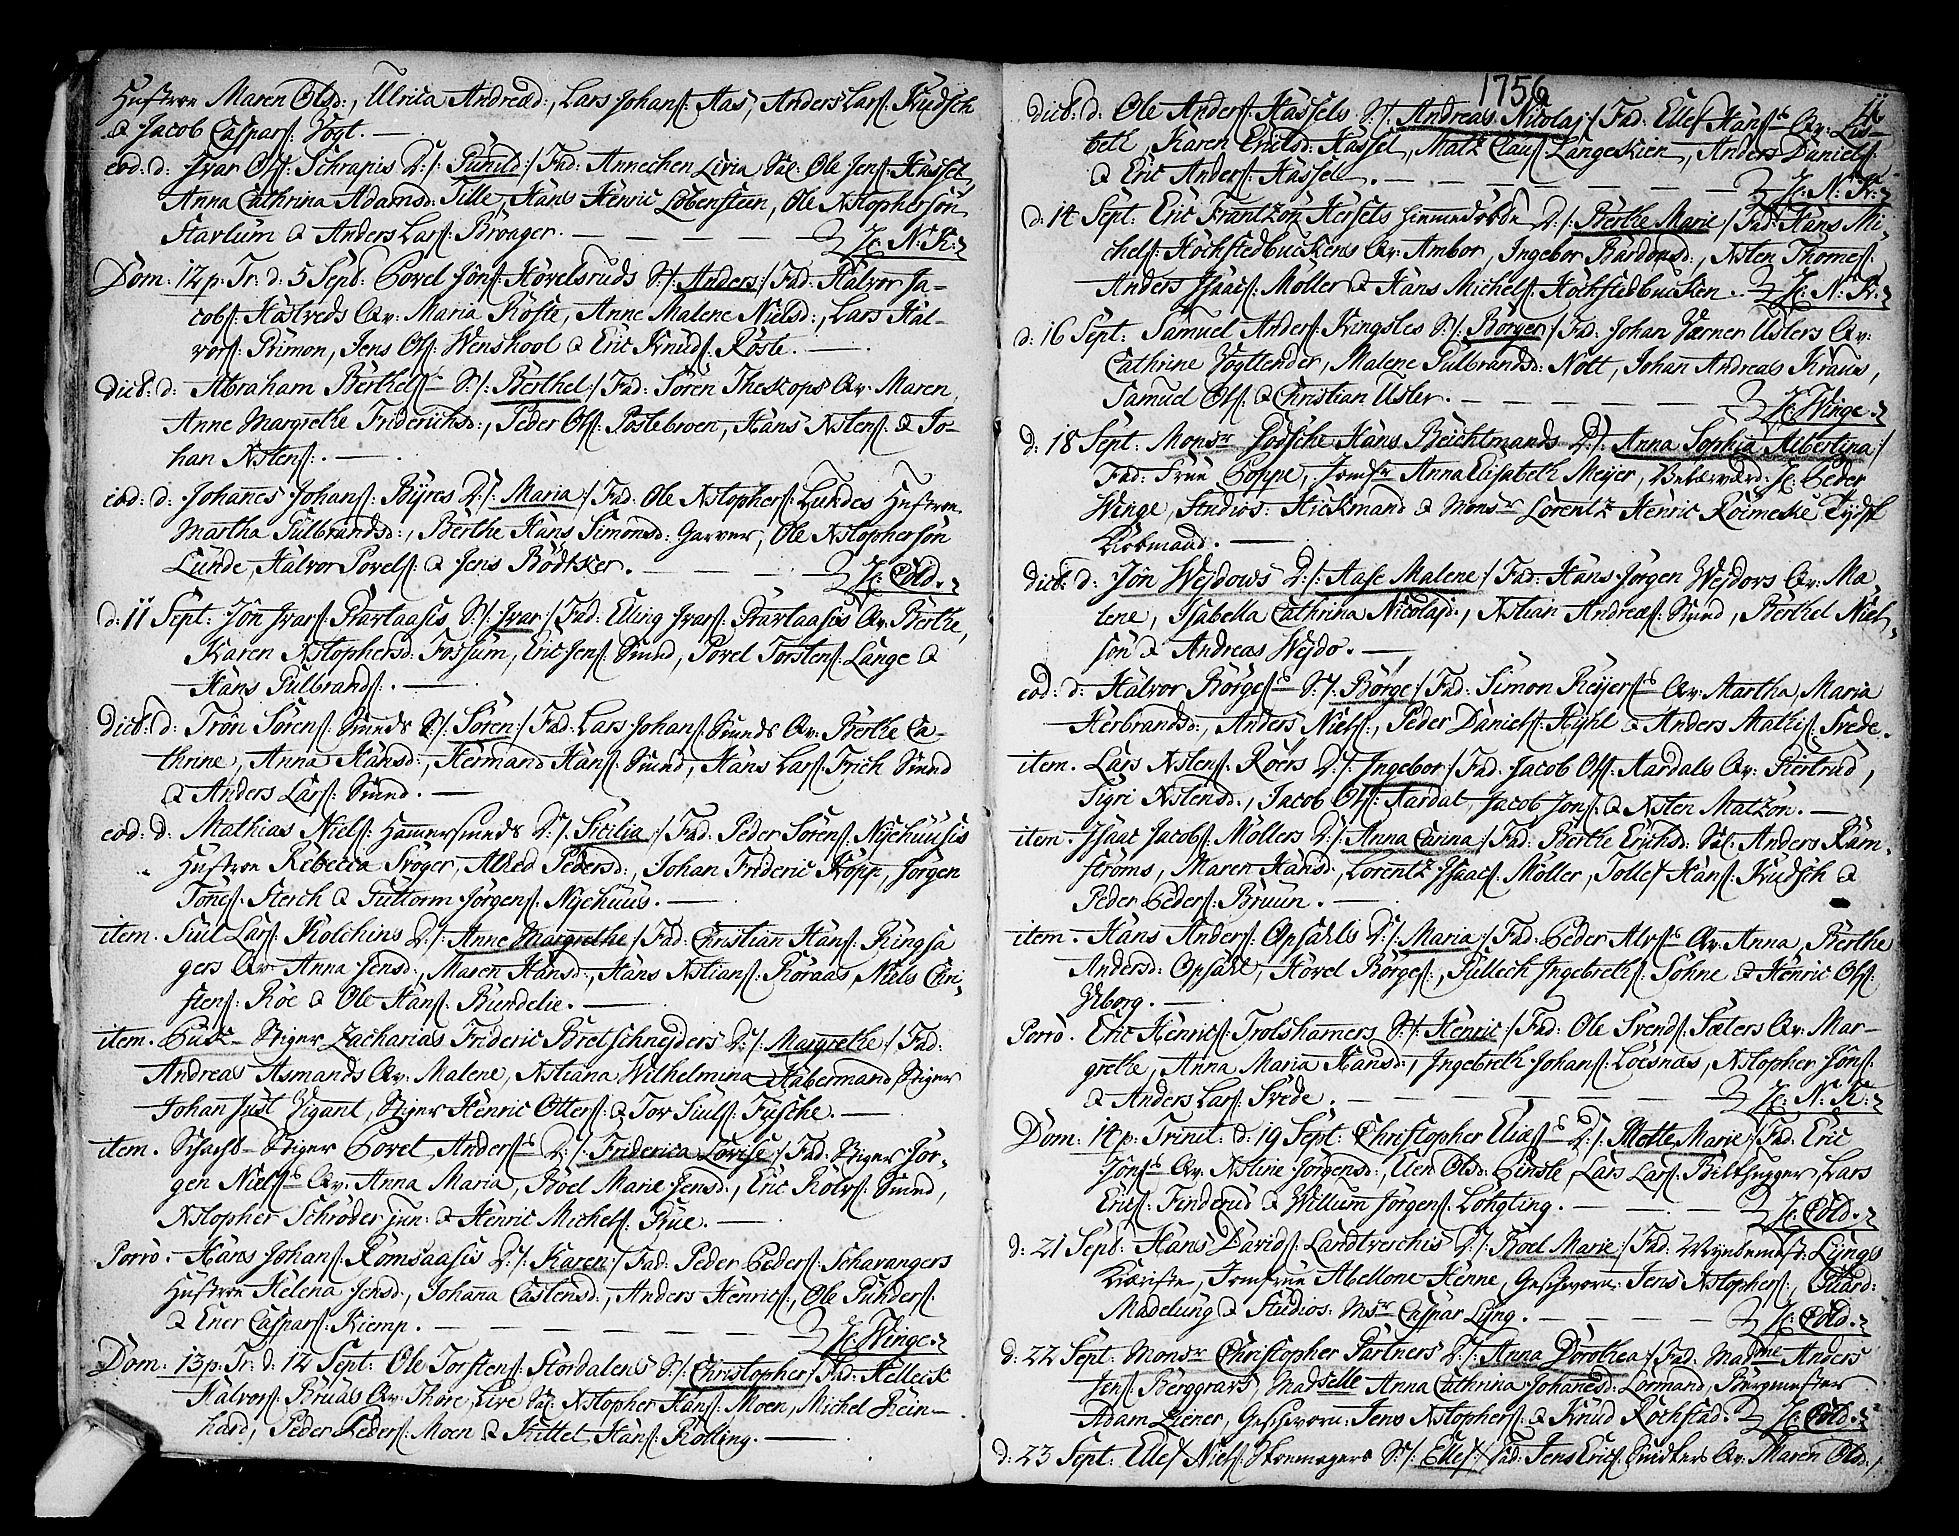 Hustroe Maren Olsd:, Ulrica Andreæd:, Lars Johans: Aas, Anders Lars: Kudsch
& Jacob Caspars: Vogt. —
eod: d: Ivar Ols: Schrapis D:/: Gunild:/ Fad: Annechen Livia Sal: Ole Jens: Hassel,
Anna Cathrina Adamsd: Tille, Hans Henric Löbensteen, Ole Xstophersön
Starlum & Anders Lars: Broager. — H: N: K:
Dom: 12 p. Tr: d: 5 Septb: Povel Jöns: Hovelsruds S:/: Anders:/ Fad: Halvor Ja-
cobs: Hostveds Qv: Maria Röste, Anne Malene Nielsd:, Lars Hal-
vors: Primon, Jens Ols: Wenskool & Eric Knuds: Röste. —
dict: d: Abraham Berthels: S:/: Berthel:/ Fad: Sören Theskops Qv: Maren,
Anne Margrethe Friderichsd:, Peder Ols: Postebroen, Hans Xstens: & Jo-
han Xstens:. —
eod: d: Johanes Johans: Byres D:/: Maria:/ Fad: Ole Xstophers: Lundes Hustroe
Martha Gulbrandsd:, Berthe Hans Simonsd: Garver, Ole Xstophersön
Lunde, Halvor Povels: & Jens Bödtker. — H: Cold.
d: 11 Sept: Jön Ivars: Skartaasis S:/: Ivar:/ Fad: Elling Ivars: Skartaasis Qv: Berthe,
Karen Xstophersd: Fossum, Eric Jens: Smed, Povel Torstens: Lange &
Hans Gulbrands:. —
dict: d: Trön Sörens: Smeds S:/: Sören:/ Fad: Lars Johans: Smeds Qv: Berthe Ca-
thrine, Anna Hansd:, Hermand Hans: Smed, Hans Lars: Frich Smed
& Anders Lars: Smed. —
eod: d: Mathias Niels: Hamersmeds D:/: Sicilia:/ Fad: Peder Sörens: Nyehuusis
Hustroe Rebecca Sröger, Alhed Pedersd:, Johan Frideric Kopp, Jörgen
Tönes: Sterch & Guttorm Jörgens: Nyehuus. —
item. Siul Lars: Kolchins D:/: Anne Margrethe:/ Fad: Christian Hans: Ringsa
gers Qv: Anna Jensd:, Maren Hansd:, Hans Xstians: Roraas, Niels Chri-
stens: Röe & Ole Hans: Bundelie. —
item. Stiger Zacharias Frideric Bretschneyders D:/: Margrethe:/ Fad:
Andreas Asmands Qv: Malene, Xstiana Wilhelmina Habermand, Stiger
Johan Just Vigant, Stiger Henric Otters: & Tor Siuls: Fusche. —
item. Schact- Stiger Povel Anders: D:/: Friderica Lovise:/ Fad: Stiger Jör-
gen Niels: Qv: Anna Maria, Röel Marie Jensd:, Eric Rolvs: Smed,
Xstopher Schröder jun: & Henric Michels: Rue. —
Porro. Hans Johans: Romsaasis D:/: Karen:/ Fad: Peder Peders: Schavangers
Hustroe Helena Jensd:, Johana Castensd:, Anders Henrics:, Ole Gunders:
& Ener Caspars: Kiemp. — H: Winge.
Dom: 13 p: Tr: d: 12 Sept: Ole Torstens: Stordalens S:/: Christopher:/ Fad: Kelleck
Halvors: Bruas Qv: Thore, Live Sal: Xstopher Hans: Moen, Michel Rein-
hard, Peder Peders: Moen & Kittel Hans: Kolling. —
1756
dict: d: Ole Anders: Hassels S:/: Andreas Nicolaj:/ Fad: Ellef Hans: Qv: Lis-
beth, Karen Erichsd: Hassel, Matz Claus: Langeskien, Anders Daniels:
& Eric Anders: Hassel. — H: N: K:
d: 14 Sept: Eric Frantzön Hersels D:/: Berthe Marie:/ Fad: Hans Mi-
chels: Kochstedbuckens Qv: Ambor, Ingebor Bårdonsd:, Xsten Thomes:
Anders Isaacs: Möller & Hans Michels: Kochstedbucken. — H: N: K:
d: 16 Sept: Samuel Anders: Kingstes S:/: Börger:/ Fad: Johan Verner Uslers Qv:
Cathrine Vogttender, Malene Gulbrandsd: Nott, Johan Andreas Kraus,
Samuel Ols: & Christian Usler. — H: Winge.
d: 18 Sept: Monsr Hans Beichtmands D:/: Anna Sophia Albertina:/
Fad: Frue Poppe, Jomfr Anna Elisabeth Meyer, Velærværd: H: Peder
Winge, Studios: Hickmand & Monsr Lorentz Henric Röimeke Tydsk
Kiöbmand. —
dict: d: Jön Wejdows D:/: Aase Malene:/ Fad: Hans Jörgen Wejdors Qv: Ma
lene, Isabella Cathrina Nicolajd:, Xstian Andreæs: Smed, Berthel Niel-
sön & Andreas Wejdo. —
eod: d: Halvor Börges: S:/: Börge:/ Fad: Simon Reyers: Qv: Martha, Maria
Herbrandsd:, Anders Niels:, Peder Daniels: Kyhl & Anders Mathis: Svede.
item. Lars Xstens: Röers D:/: Ingebor:/ Fad: Jacob Ols: Aardals Qv: Giertrud,
Sigri Xstensd:, Jacob Ols: Aardal, Jacob Jons: & Xsten Matzön. —
item. Isaac Jacobs: Möllers D:/: Anna Carina:/ Fad: Berthe Erichsd: Sal: Anders Ram-
ströms, Maren Hansd:, Lorentz Isaacs: Möller, Tollef Hans: Kudsch &
Peder Peders: Bruun. —
item. Hans Anders: Opsahls D:/: Maria:/ Fad: Peder Alvs: Qv: Anna, Berthe
Andersd: Opsahl, Hovel Börges:, Gullech Ingebreths: Söhne & Henric Ols:
Viborg. —
Porro. Eric Henrics: Trolshamers S:/: Henric:/ Fad: Ole Svends: Sæters Qv: Mar-
grethe, Anna Maria Hansd:, Ingebreth Johans: Loesnæs, Xstopher Jöns:
& Anders Lars: Svede. — H: N: K:
Dom: 14 p: Trinit: d: 19 Sept: Christopher Elias: D:/: Mette Marie:/ Fad: Eric
Jöns: Qv: Xstine Jörgensd:, Elen Olsd: Einste, Lars Lars: Bilthugger, Lars
Erics: Finderud & Willum Jörgens: Löhgting. — H: Cold.
d: 21 Septb: Hans Davids: Landtreschis D:/: Roel Marie:/ Fad: Myntemest: Lyngs
Kiæriste, Jomfrue Abellone Henne, Geschworn: Jens Xstophers:, Guard:
Madelung & Studios: Msr Caspar Lyng. — H: Cold.
d: 22 Sept: Monsr Christopher Gartners D:/: Anna Dorothea:/ Fad: Madme Anders
Jens: Berggravs, Madselle Anna Cathrina Johanesd: Lormand, Bergmester
Adam Ziener, Geschworn: Jens Xstophers: & Knud Rochstad. H: Cold.
d: 23 Sept: Ellef Niels: Stenmagers S:/: Ellef:/ Fad: Jens Erics: Snidkers Qv: Maren Olsd:,